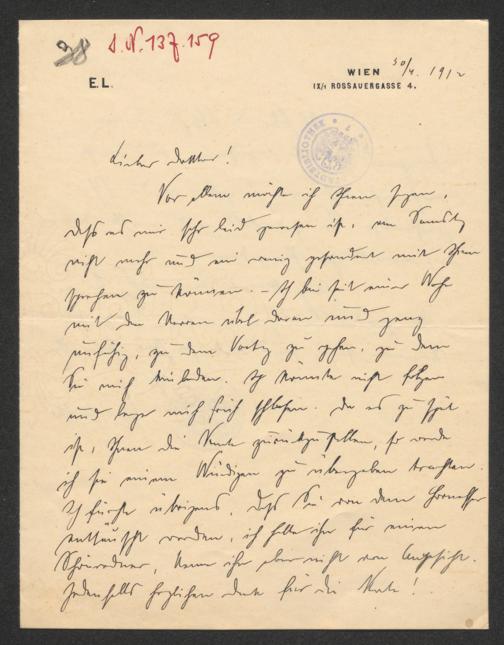 38 I.N. 137.159
E.L.
WIEN 30/4. 1912
IX/1 ROSSAUERGASSE 4.
Lieber Doktor!
Vor allem möchte ich Ihnen sagen,
daß es mir sehr leid gewesen ist, am Samstag
nicht mehr und ein wenig gesondert mit Ihnen
sprechen zu können. – Ich bin seit einer Woche
mit den Nerven übel daran und ganz
unfähig, zu dem Vortrag zu gehen, zu dem
Sie mich einladen. Ich könnte nicht folgen
und lege mich früh schlafen. Da es zu spät
ist, Ihnen die Karte zurückzustellen, so werde
ich sie einem Würdigen zu übergeben trachten.
Ich fürchte übrigens, daß Sie von dem
enttäuscht werden, ich halte ihn für einen
Schönredner, kenne ihn aber nicht von Angesicht.
Jedenfalls herzlichen Dank für die Karte!